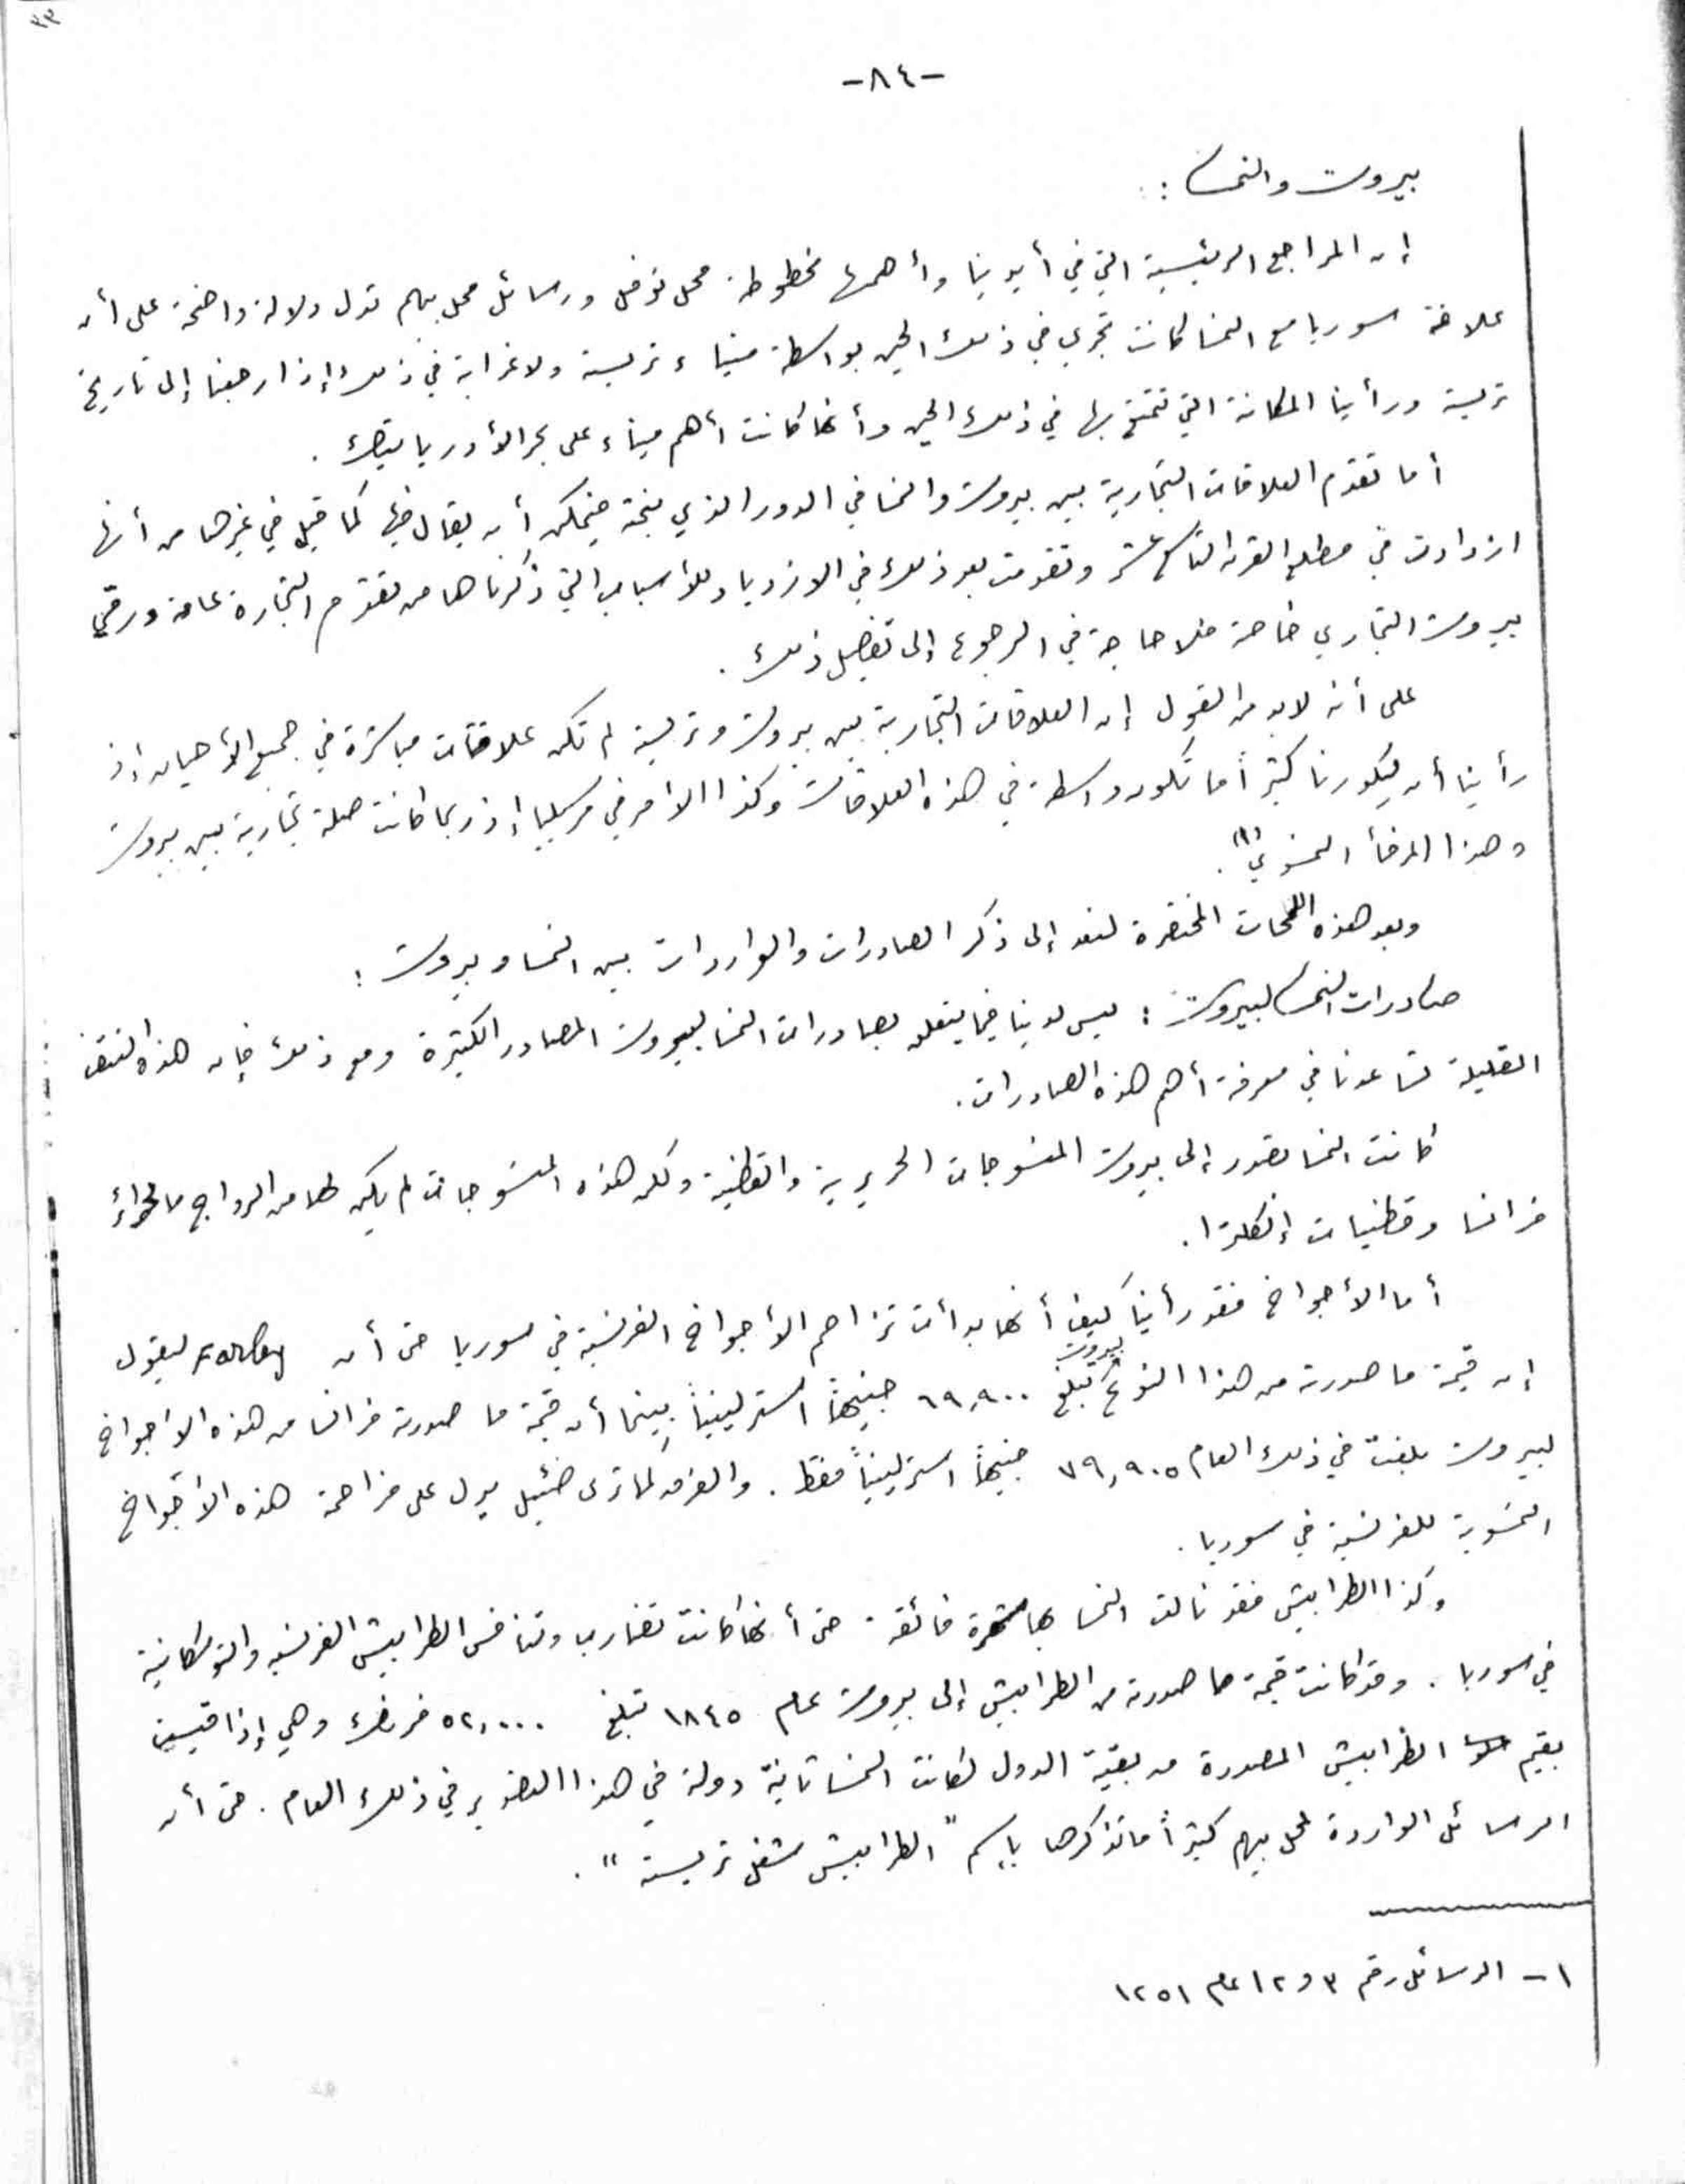 ٣٣
-٨٤-
بيروت والنمسا :
إن المراجع الرئيسية التي في أيدينا وأهمها مخطوطة محل نوفل ورسائل محل بيهم تدل دلالة واضحة على أن
علاقة سوريا مع النمسا كانت تجري في ذلك الحين بواسطة ميناء تريسته ولا غرابة في ذلك إذا رجعنا إلى تاريخ
تريسته ورأينا المكانة التي تتمتع بها في ذلك الحين وأنها كانت أهم ميناء على بحر الأدرياتيك .
أما تقدم العلاقات التجارية بين بيروت والنمسا في الدور الذي نبحثه فيمكن أن يقال فيها كما قيل في غيرها من أنها
ازدادت في مطلع القرن التاسع عشر وتقدمت بعد ذلك في الازدياد وللأسباب التي ذكرناها من تقدم التجارة عامة ورقي
بيروت التجاري خاصة فلا حاجة في الرجوع إلى تفصيل ذلك .
على أنه لابد من القول إن العلاقات التجارية بين بيروت وتريسته لم تكن علاقات مباشرة في جميع الأحيان إذ
رأينا أن ليكورنا كثيراً ما تكون واسطة في هذه العلاقات وكذا الامر في مرسيليا إذ ربما كانت صلة تجارية بين بيروت
وهذا المرفأ النمسوي (١) .
وبعد هذه اللمحات المختصرة لنعد إلى ذكر الصادرات والواردات بين النمسا وبيروت :
صادرات النمسا لبيروت : ليس لدينا فيما يتعلق بصادرات النمسا لبيروت المصادر الكثيرة ومع ذلك فإن هذه النتف
القليلة تساعدنا في معرفة أهم هذه الصادرات .
كانت النمسا تصدر إلى بيروت المنسوجات الحريرية والقطنية ولكن هذه المنسوجات لم يكن لها من الرواج ما لحرائر
فرانسا وقطنيات إنكلترا .
أما الأجواخ فقد رأينا كيف أنها بدأت تزاحم الأجواخ الفرنسية في سوريا حتى أن Farley ليقول
إن قيمة ما صدرته من هذا النوع لبيروت تبلغ ٦٩,٩٠٠ جنيهاً استرلينياً بينما أن قيمة ما صدرته فرانسا من هذه الاجواخ
لبيروت بلغت في ذلك العام ٧٩,٩٠٥ جنيهاً استرلينياً فقط . والفرق كما ترى ضئيل يدل على مزاحمة هذه الأجواخ
النمسوية للفرنسية في سوريا .
وكذا الطرابيش فقد نالت النمسا بها شهرة فائقة حتى أنها كانت تضارب وتنافس الطرابيش الفرنسية والتوسكانية
في سوريا . وقد كانت قيمة ما صدرته من الطرابيش إلى بيروت عام ١٨٤٥ تبلغ ٥٢,٠٠٠ فرنك وهي إذا قيست
بقيم الطرابيش المصدرة من بقية الدول لكانت النمسا ثانية دولة في هذا التصدير في ذلك العام . حتى أن
الرسائل الواردة لمحل بيهم كثيراً ما تذكرها باسم " الطرابيش شغل تريسته " .
١ - الرسائل رقم ٣ و ١٢ عام ١٢٥١